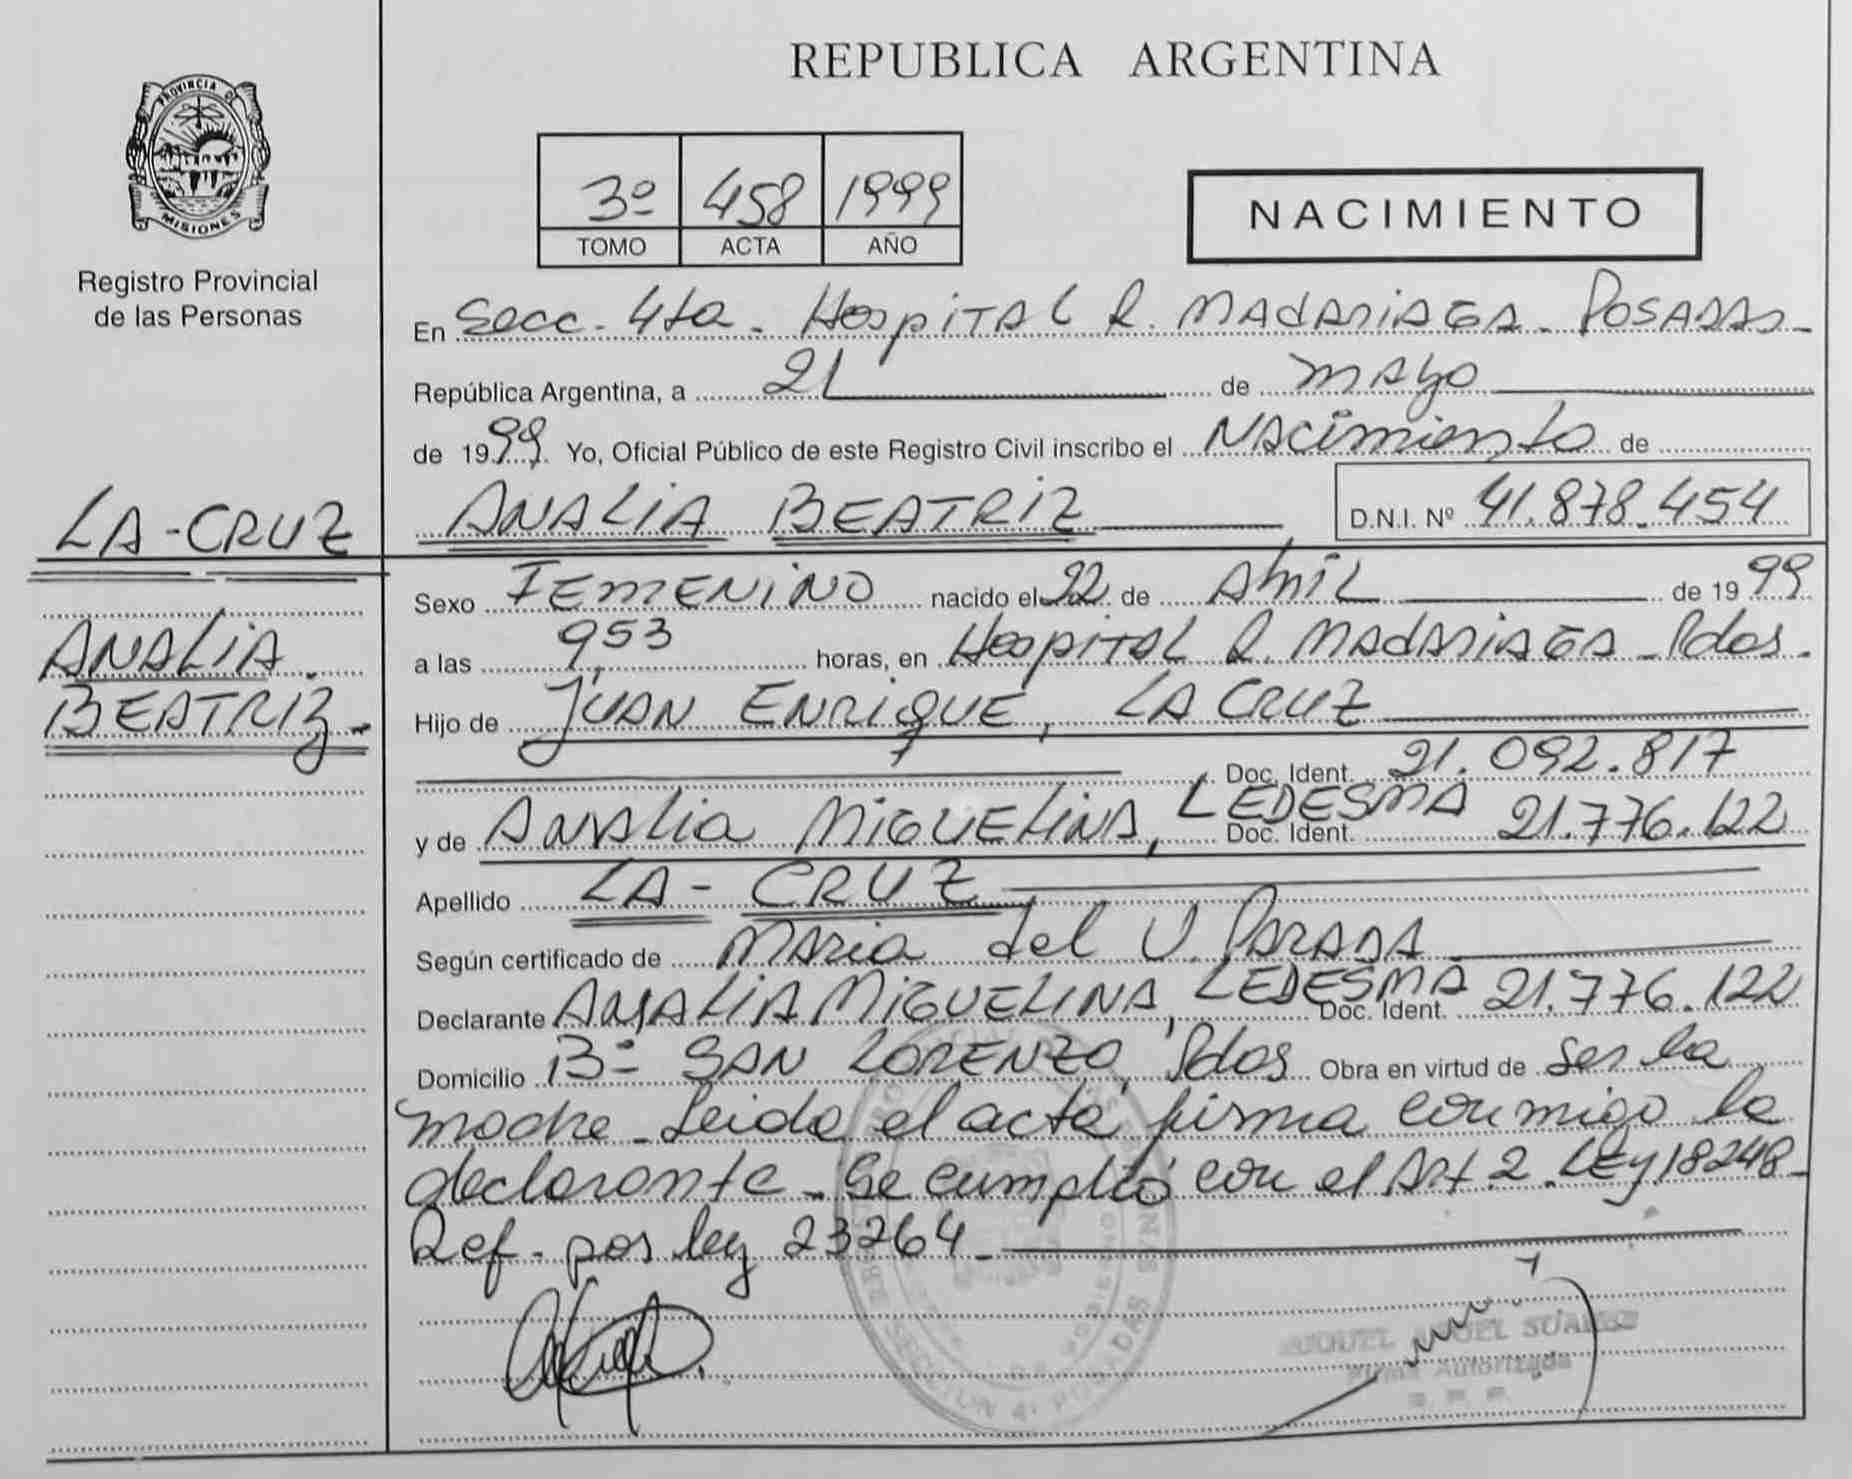 REPUBLICA ARGENTINA
PROVINCIA DE
MISIONES
Registro Provincial
de las Personas
3º 458 1999
TOMO ACTA AÑO
NACIMIENTO
En Secc. 4ta. Hospital R. MADARIAGA. POSADAS
República Argentina, a 21 de mayo
de 1999 Yo, Oficial Público de este Registro Civil inscribo el NACimiento de
LA-CRUZ
ANALIA BEATRIZ D.N.I. Nº 41.878.454
ANALIA
BEATRIZ
Sexo FEMENINO nacido el 22 de Abril de 1999
a las 9,53 horas, en Hospital R. MADARIAGA - Pdas.
Hijo de JUAN ENRIQUE, LA CRUZ
Doc. Ident. 21.092.817
y de ANALia MIGUELINA, LEDESMA Doc. Ident. 21.776.122
Apellido LA - CRUZ
Según certificado de MARia del V. PARADA
Declarante ANALIA MIGUELINA, LEDESMA Doc. Ident. 21.776.122
Domicilio Bº SAN LORENZO, Pdas Obra en virtud de ser la
madre - Leida el acta firma conmigo la
declarante. Se cumplió con el Art. 2. LEy 18248-
Ref. por ley 23264
MIGUEL ANGEL SUAREZ
Firma Autorizada